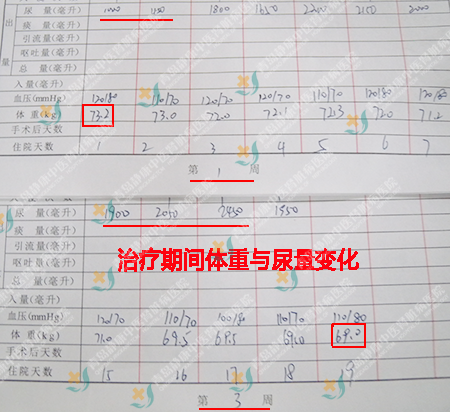 尿 量(毫升) 1000 1800 1650 2200 2150 2000
痰 量(毫升)
出 引流量(毫升)
呕吐量(毫升)
量 总 量(毫升)
入量(毫升)
血压(mmHg) 120/80 110/70 120/70 120/70 110/70 120/80 120/80
体 重(kg) 73.2 73.0 72.0 72.1 72.3 72.0 71.2
手术后天数
住院天数 1 2 3 4 5 6 7
第 1 周
尿 量(毫升) 1900 2050 2450 1950
痰 量(毫升)
引流量(毫升)
呕吐量(毫升)
治疗期间体重与尿量变化
总 量(毫升)
入量(毫升)
血压(mmHg) 120/70 110/70 100/80 110/70 110/80
体 重(kg) 71.0 69.5 69.5 69.0
手术后天数
住院天数 15 16 17 18 19
第 3 周